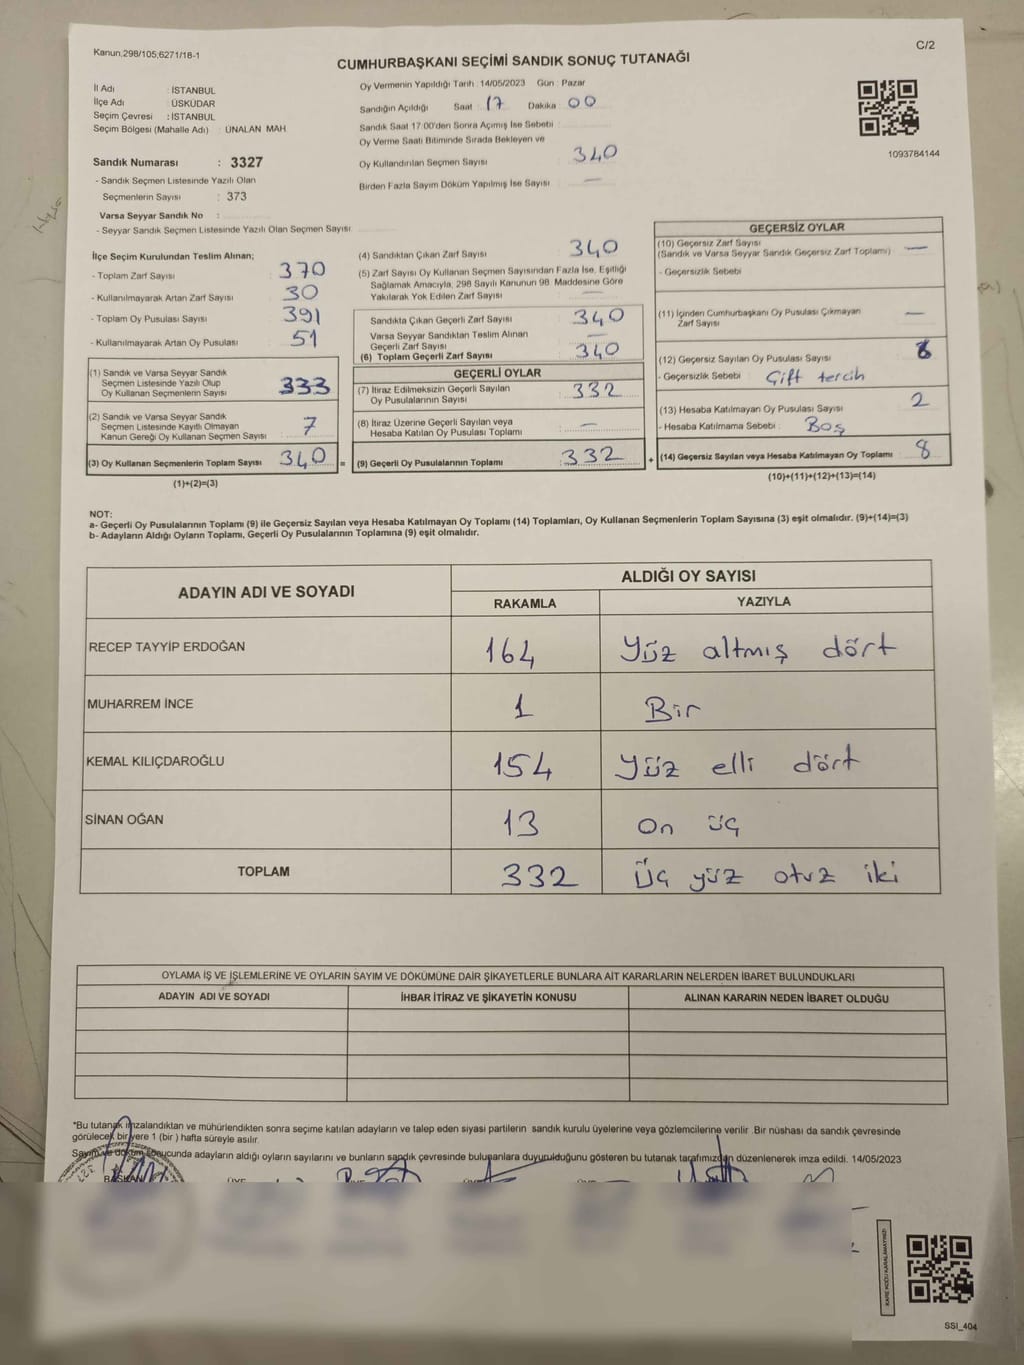 Kanun,298/105;6271/18-1
C/2
CUMHURBAŞKANI SEÇİMİ SANDIK SONUÇ TUTANAĞI
İl Adı : İSTANBUL
İlçe Adı : ÜSKÜDAR
Seçim Çevresi : İSTANBUL
Seçim Bölgesi (Mahalle Adı) : ÜNALAN MAH.
Sandık Numarası : 3327
- Sandık Seçmen Listesinde Yazılı Olan
Seçmenlerin Sayısı : 373
Varsa Seyyar Sandık No :
- Seyyar Sandık Seçmen Listesinde Yazılı Olan Seçmen Sayısı
Oy Vermenin Yapıldığı Tarih : 14/05/2023 Gün : Pazar
Sandığın Açıldığı Saat 17 Dakika 00
Sandık Saat 17:00'den Sonra Açımış İse Sebebi
Oy Verme Saati Bitiminde Sırada Bekleyen ve
Oy Kullandırılan Seçmen Sayısı 340
Birden Fazla Sayım Döküm Yapılmış İse Sayısı —
1093784144
İlçe Seçim Kurulundan Teslim Alınan;
- Toplam Zarf Sayısı 370
- Kullanılmayarak Artan Zarf Sayısı 30
- Toplam Oy Pusulası Sayısı 391
- Kullanılmayarak Artan Oy Pusulası 51
(1) Sandık ve Varsa Seyyar Sandık
Seçmen Listesinde Yazılı Olup
Oy Kullanan Seçmenlerin Sayısı 333
(2) Sandık ve Varsa Seyyar Sandık
Seçmen Listesinde Kayıtlı Olmayan
Kanun Gereği Oy Kullanan Seçmen Sayısı 7
(3) Oy Kullanan Seçmenlerin Toplam Sayısı 340 =
(1)+(2)=(3)
(4) Sandıktan Çıkan Zarf Sayısı 340
(5) Zarf Sayısı Oy Kullanan Seçmen Sayısından Fazla İse, Eşitliği
Sağlamak Amacıyla, 298 Sayılı Kanunun 98. Maddesine Göre
Yakılarak Yok Edilen Zarf Sayısı —
Sandıkta Çıkan Geçerli Zarf Sayısı 340
Varsa Seyyar Sandıktan Teslim Alınan
Geçerli Zarf Sayısı —
(6) Toplam Geçerli Zarf Sayısı 340
GEÇERLİ OYLAR
(7) İtiraz Edilmeksizin Geçerli Sayılan
Oy Pusulalarının Sayısı 332
(8) İtiraz Üzerine Geçerli Sayılan veya
Hesaba Katılan Oy Pusulası Toplamı —
(9) Geçerli Oy Pusulalarının Toplamı 332 +
GEÇERSİZ OYLAR
(10) Geçersiz Zarf Sayısı
(Sandık ve Varsa Seyyar Sandık Geçersiz Zarf Toplamı) —
- Geçersizlik Sebebi
(11) İçinden Cumhurbaşkanı Oy Pusulası Çıkmayan
Zarf Sayısı —
(12) Geçersiz Sayılan Oy Pusulası Sayısı 6
- Geçersizlik Sebebi : Çift tercih
(13) Hesaba Katılmayan Oy Pusulası Sayısı 2
- Hesaba Katılmama Sebebi : Boş
(14) Geçersiz Sayılan veya Hesaba Katılmayan Oy Toplamı 8
(10)+(11)+(12)+(13)=(14)
NOT:
a- Geçerli Oy Pusulalarının Toplamı (9) ile Geçersiz Sayılan veya Hesaba Katılmayan Oy Toplamı (14) Toplamları, Oy Kullanan Seçmenlerin Toplam Sayısına (3) eşit olmalıdır. (9)+(14)=(3)
b- Adayların Aldığı Oyların Toplamı, Geçerli Oy Pusulalarının Toplamına (9) eşit olmalıdır.
ADAYIN ADI VE SOYADI
ALDIĞI OY SAYISI
RAKAMLA YAZIYLA
RECEP TAYYİP ERDOĞAN 164 Yüz altmış dört
MUHARREM İNCE 1 Bir
KEMAL KILIÇDAROĞLU 154 Yüz elli dört
SİNAN OĞAN 13 On üç
TOPLAM 332 Üç yüz otuz iki
OYLAMA İŞ VE İŞLEMLERİNE VE OYLARIN SAYIM VE DÖKÜMÜNE DAİR ŞİKAYETLERLE BUNLARA AİT KARARLARIN NELERDEN İBARET BULUNDUKLARI
ADAYIN ADI VE SOYADI İHBAR İTİRAZ VE ŞİKAYETİN KONUSU ALINAN KARARIN NEDEN İBARET OLDUĞU
*Bu tutanak imzalandıktan ve mühürlendikten sonra seçime katılan adayların ve talep eden siyasi partilerin sandık kurulu üyelerine veya gözlemcilerine verilir .Bir nüshası da sandık çevresinde
görülecek bir yere 1 (bir ) hafta süreyle asılır.
Sayım ve döküm sonucunda adayların aldığı oyların sayılarını ve bunların sandık çevresinde bulunanlara duyurulduğunu gösteren bu tutanak tarafımızdan düzenlenerek imza edildi. 14/05/2023
BAŞKAN
KARE KODU KARALAMAYINIZ!
SSI_404